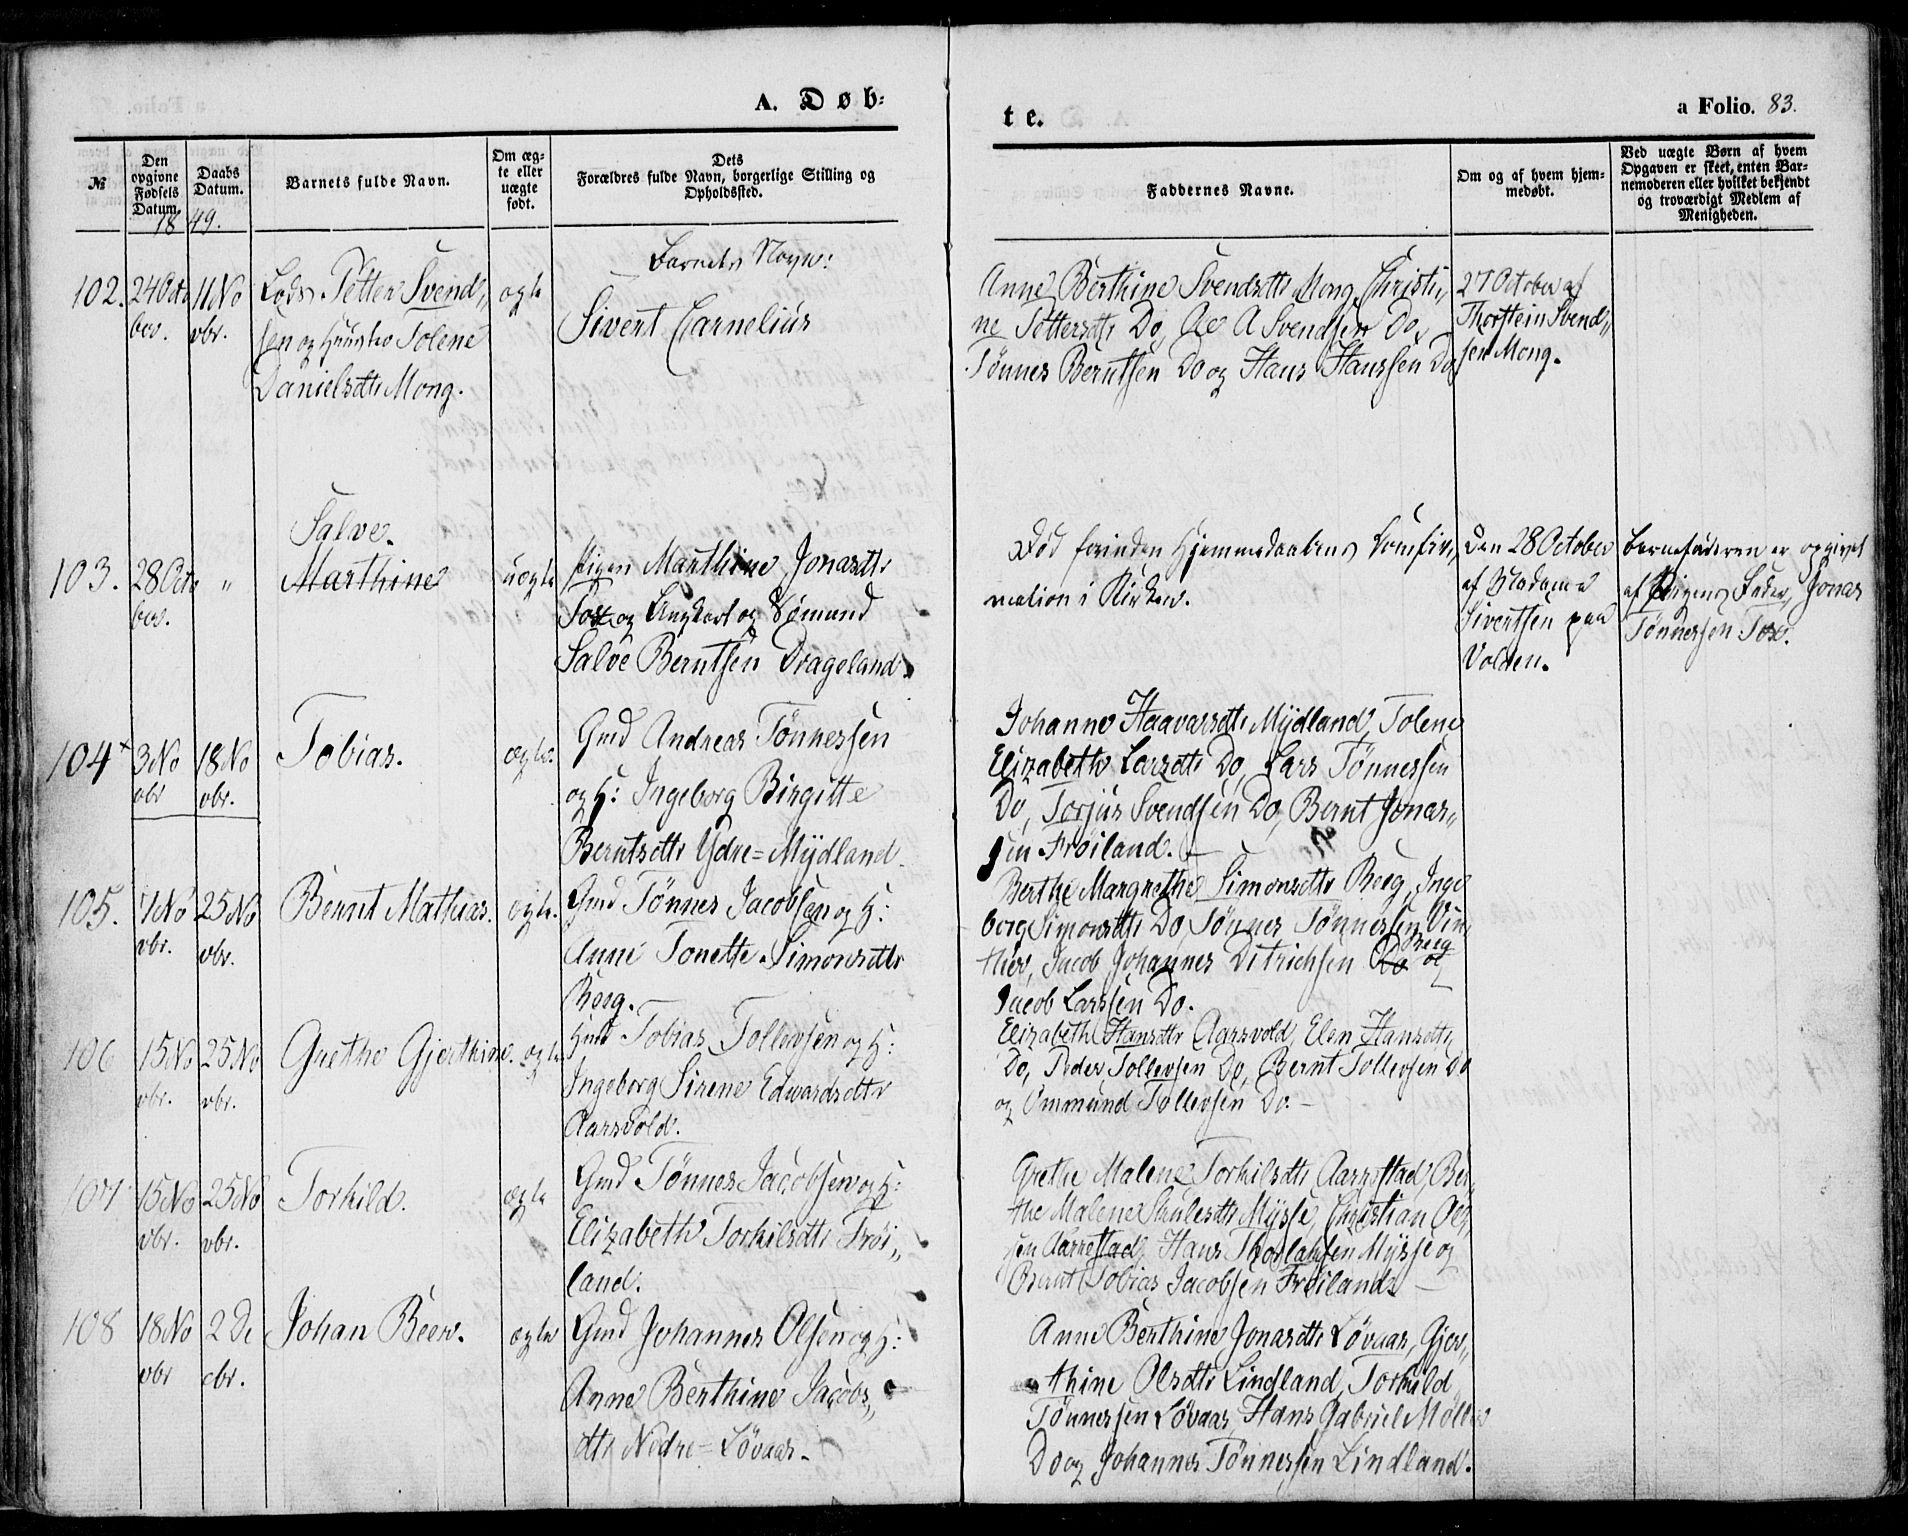 A. Døb-
te.
a Folio. 83.
№
Den opgivne Fødsels Datum.
Daabs Datum.
Barnets fulde Navn.
Om ægte eller uægte født.
Dets Forældres fulde Navn, borgerlige Stilling og Opholdssted.
Faddernes Navne.
Om og af hvem hjemmedøbt.
Ved uægte Børn af hvem Opgaven er skeet, enten Barnemoderen eller hvilket bekjendt og troværdigt Medlem af Menigheden.
1849.
102. 24 Octo
ber.
11 No
vbr.
Lods Petter Svend„
sen og Huustro Tolene
Danielsdtr Mong.
ægte
Barnets Navn:
Sivert Carnelius
Anne Berthine Svendsdtr Mong, Christi„
ne Pettersdtr Do, A Svendsen Do,
Tønnes Berntsen Do og Hans Hanssen Do
27 October af
Thorstein Svend„
sen Mong.
103. 28 Octo
ber.
„
Salve.
Marthine
uægte
Pigen Marthine Jonasdtr
Tox og Ungkarl og Sømand
Salve Berntsen Drageland.
Død forinden Hjemmedaabens Comfir„
mation i Kirken.
Den 28 October
af Madame
Sivertsen paa
Volden.
Barnefaderen er opgivet
af Pigens Fader, Jonas
Tønnessen Tox.
104 + 3 No
vbr
18 No
vbr.
Tobias.
ægte.
Gmd Andreas Tønnessen
og H: Ingeborg Birgitte
Berntsdtr Ydre=Mydland.
Johanne Haavarsdtr Mydland, Tolene
Elizabeth Larsdtr Do, Lars Tønnessen
Do, Torjus Svendsen Do, Bernt Jonas„
sen Frøiland.
105. 7 No
vbr.
25 No
vbr.
Bernt Mathias.
ægte.
Gmd Tønnes Jacobsen og H:
Anne Tonette Simonsdtr
Berg.
Berthe Margrethe Simonsdtr Berg, Inge
borg Simonsdtr Do, Tønnes Tønnessen Vin
ther, Jacob Johannes Ditrichsen Do Berg og
Jacob Larssen Do.
106 15 No
vbr.
25 No
vbr.
Grethe Gjerthine.
ægte
Hmd Tobias Tollevsen og H:
Ingeborg Sirene Edwardsdtr
Aarsvold.
Elizabeth Hansdtr Aarsvold, Elen Hansdtr
Do, Peder Tollevsen Do, Bernt Tollevsen Do
og Ommund Tollevsen Do.
107 15 No
vbr.
25 No
vbr.
Torkild.
ægte
Gmd Tønnes Jacobsen og H:
Elizabeth Torkilsdtr Frøi„
land.
Grethe Malene Torkilsdtr Aarrestad, Ber„
the Malene Skulesdtr Mysse, Christian Ol„
sen Aarrestad, Hans Thorlaksen Mysse og
Bernt Tobias Jacobsen Frøiland.
108 18 No
vbr
2 De
cbr.
Johan Beer.
ægte
Gmd Johannes Olsen og H:
Anne Berthine Jacobs„
dtr Nedre=Løvaas.
Anne Berthine Jonasdtr Løvaas, Gjer„
thine Olsdtr Lindland, Torkild
Tønnessen Løvaas, Hans Gabriel Møller
Do og Johannes Tønnessen Lindland.